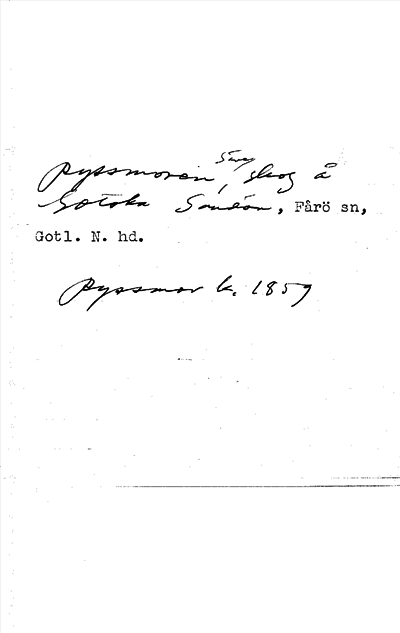 Ryssmoren, skog å
Gotska Sandön, Fårö sn,
Gotl. N. hd.
Ryssmor k. 1859